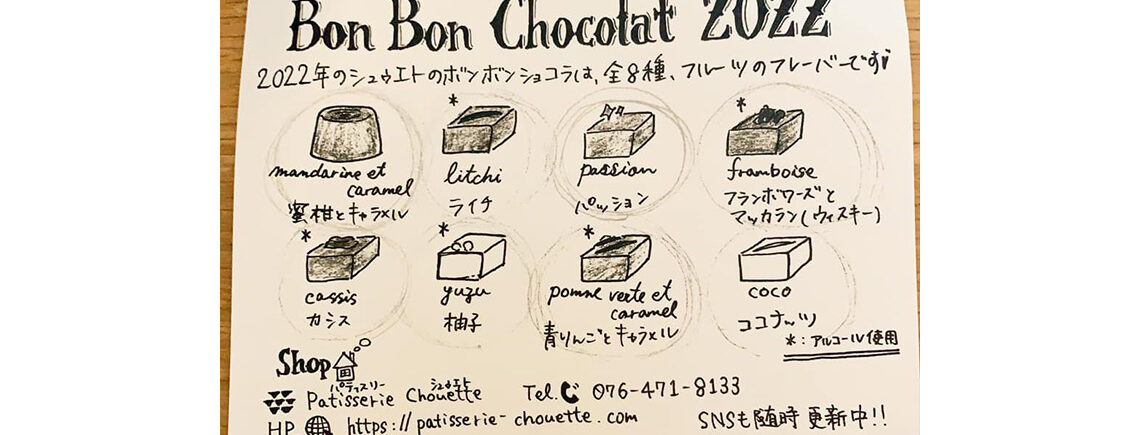 Bon Bon Chocolat 2022
2022年のシュウエトのボンボンショコラは、全8種、フルーツのフレーバーです♥
*
*
mandarine et
caramel
蜜柑とキャラメル
litchi
ライチ
passion
パッション
framboise
フランボワーズと
マッカラン(ウィスキー)
*
*
*
cassis
カシス
yuzu
柚子
pomme verte et
caramel
青りんごとキャラメル
coco
ココナッツ
*:アルコール使用
Shop
パティスリー シュウエト
Patisserie Chouette Tel. 076-471-8133
HP https://patisserie-chouette.com SNSも随時更新中!!